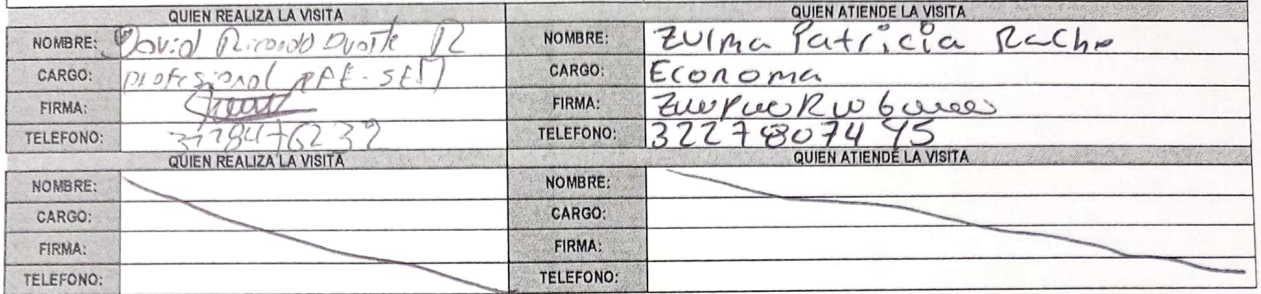 QUIEN REALIZA LA VISITA QUIEN ATIENDE LA VISITA
NOMBRE: David Ricardo Duarte R NOMBRE: Zulma Patricia Racho
CARGO: profesional PAE-SEM CARGO: Economa
FIRMA: FIRMA:
TELEFONO: TELEFONO: 32278807445
QUIEN REALIZA LA VISITA QUIEN ATIENDE LA VISITA
NOMBRE: NOMBRE:
CARGO: CARGO:
FIRMA: FIRMA:
TELEFONO: TELEFONO: